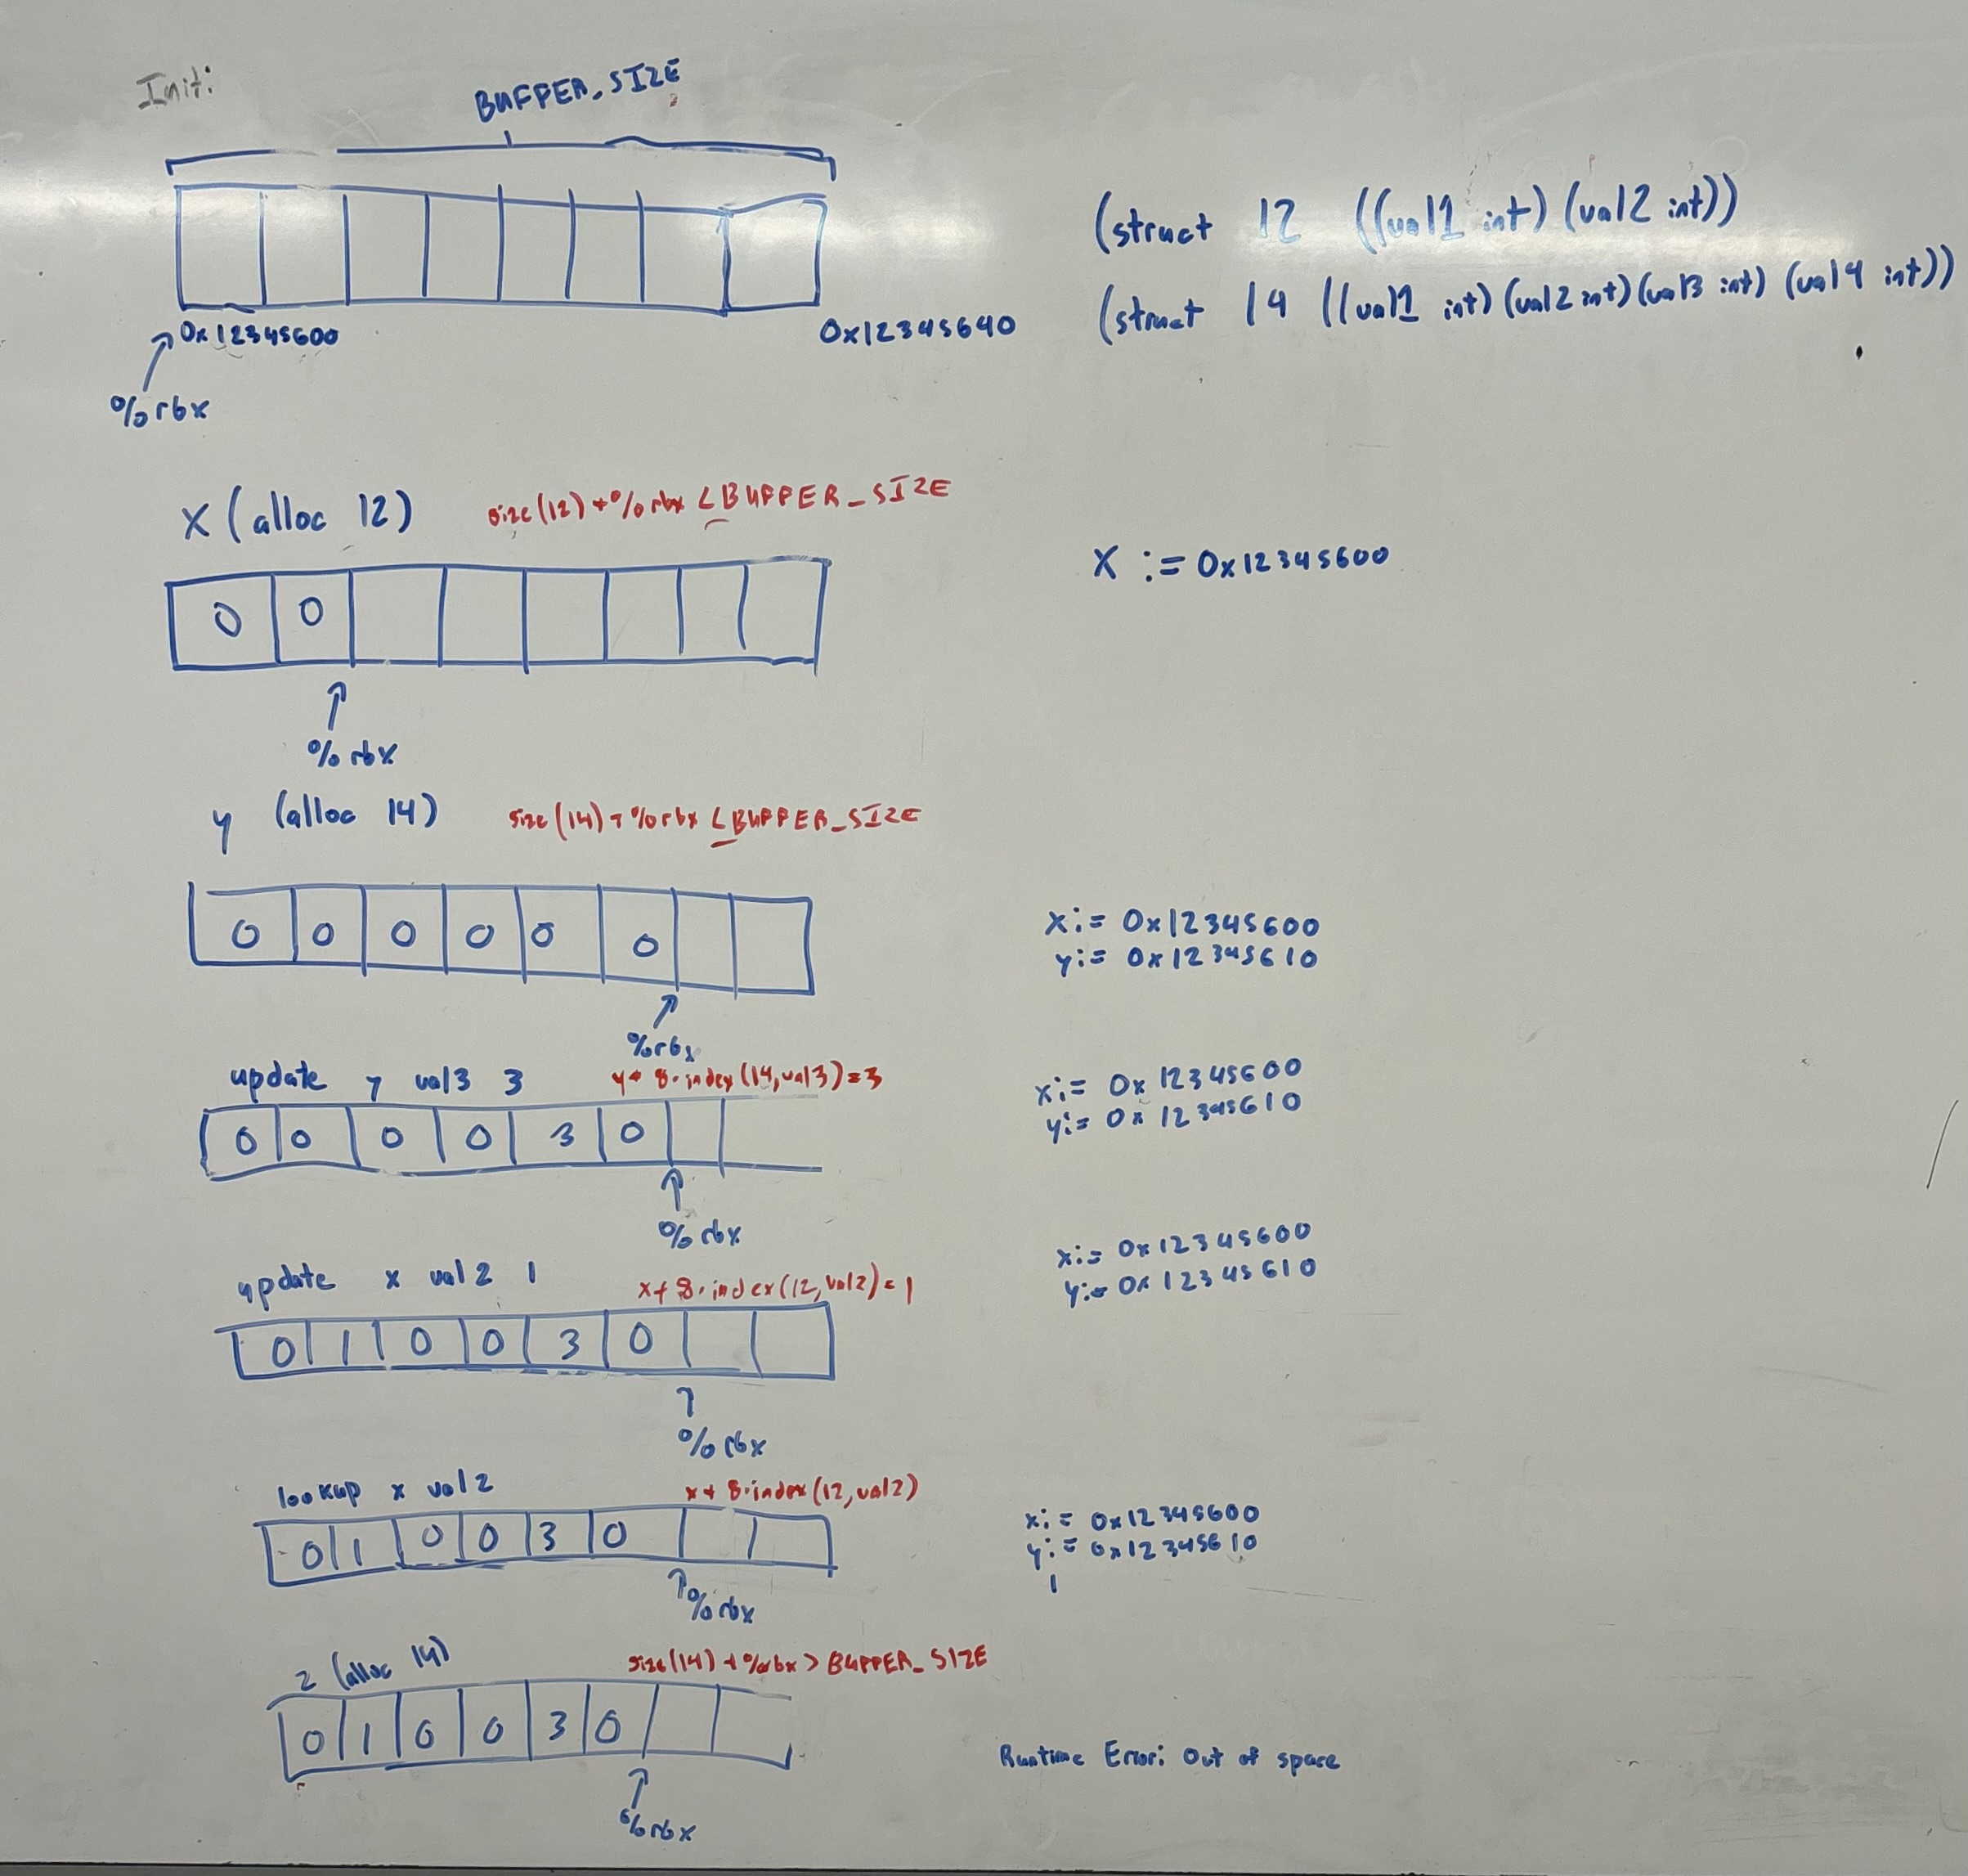 Init:
BUFFER_SIZE
0x12345600
0x12345640
%rbx
(struct l2 ((val1 int) (val2 int))
(struct l4 ((val1 int) (val2 int) (val3 int) (val4 int))
x (alloc l2)
size(l2) + %rbx < BUFFER_SIZE
0 0
x := 0x12345600
%rbx
y (alloc l4)
size(l4) + %rbx < BUFFER_SIZE
0 0 0 0 0 0
x := 0x12345600
y := 0x12345610
%rbx
update y val3 3
y + 8·index(l4,val3)=3
0 0 0 0 3 0
x := 0x12345600
y := 0x12345610
%rbx
update x val2 1
x + 8·index(l2,val2)=1
0 1 0 0 3 0
x := 0x12345600
y := 0x12345610
%rbx
lookup x val2
x + 8·index(l2,val2)
0 1 0 0 3 0
x := 0x12345600
y := 0x12345610
1
%rbx
z (alloc l4)
size(l4) + %rbx > BUFFER_SIZE
0 1 0 0 3 0
Runtime Error: Out of space
%rbx